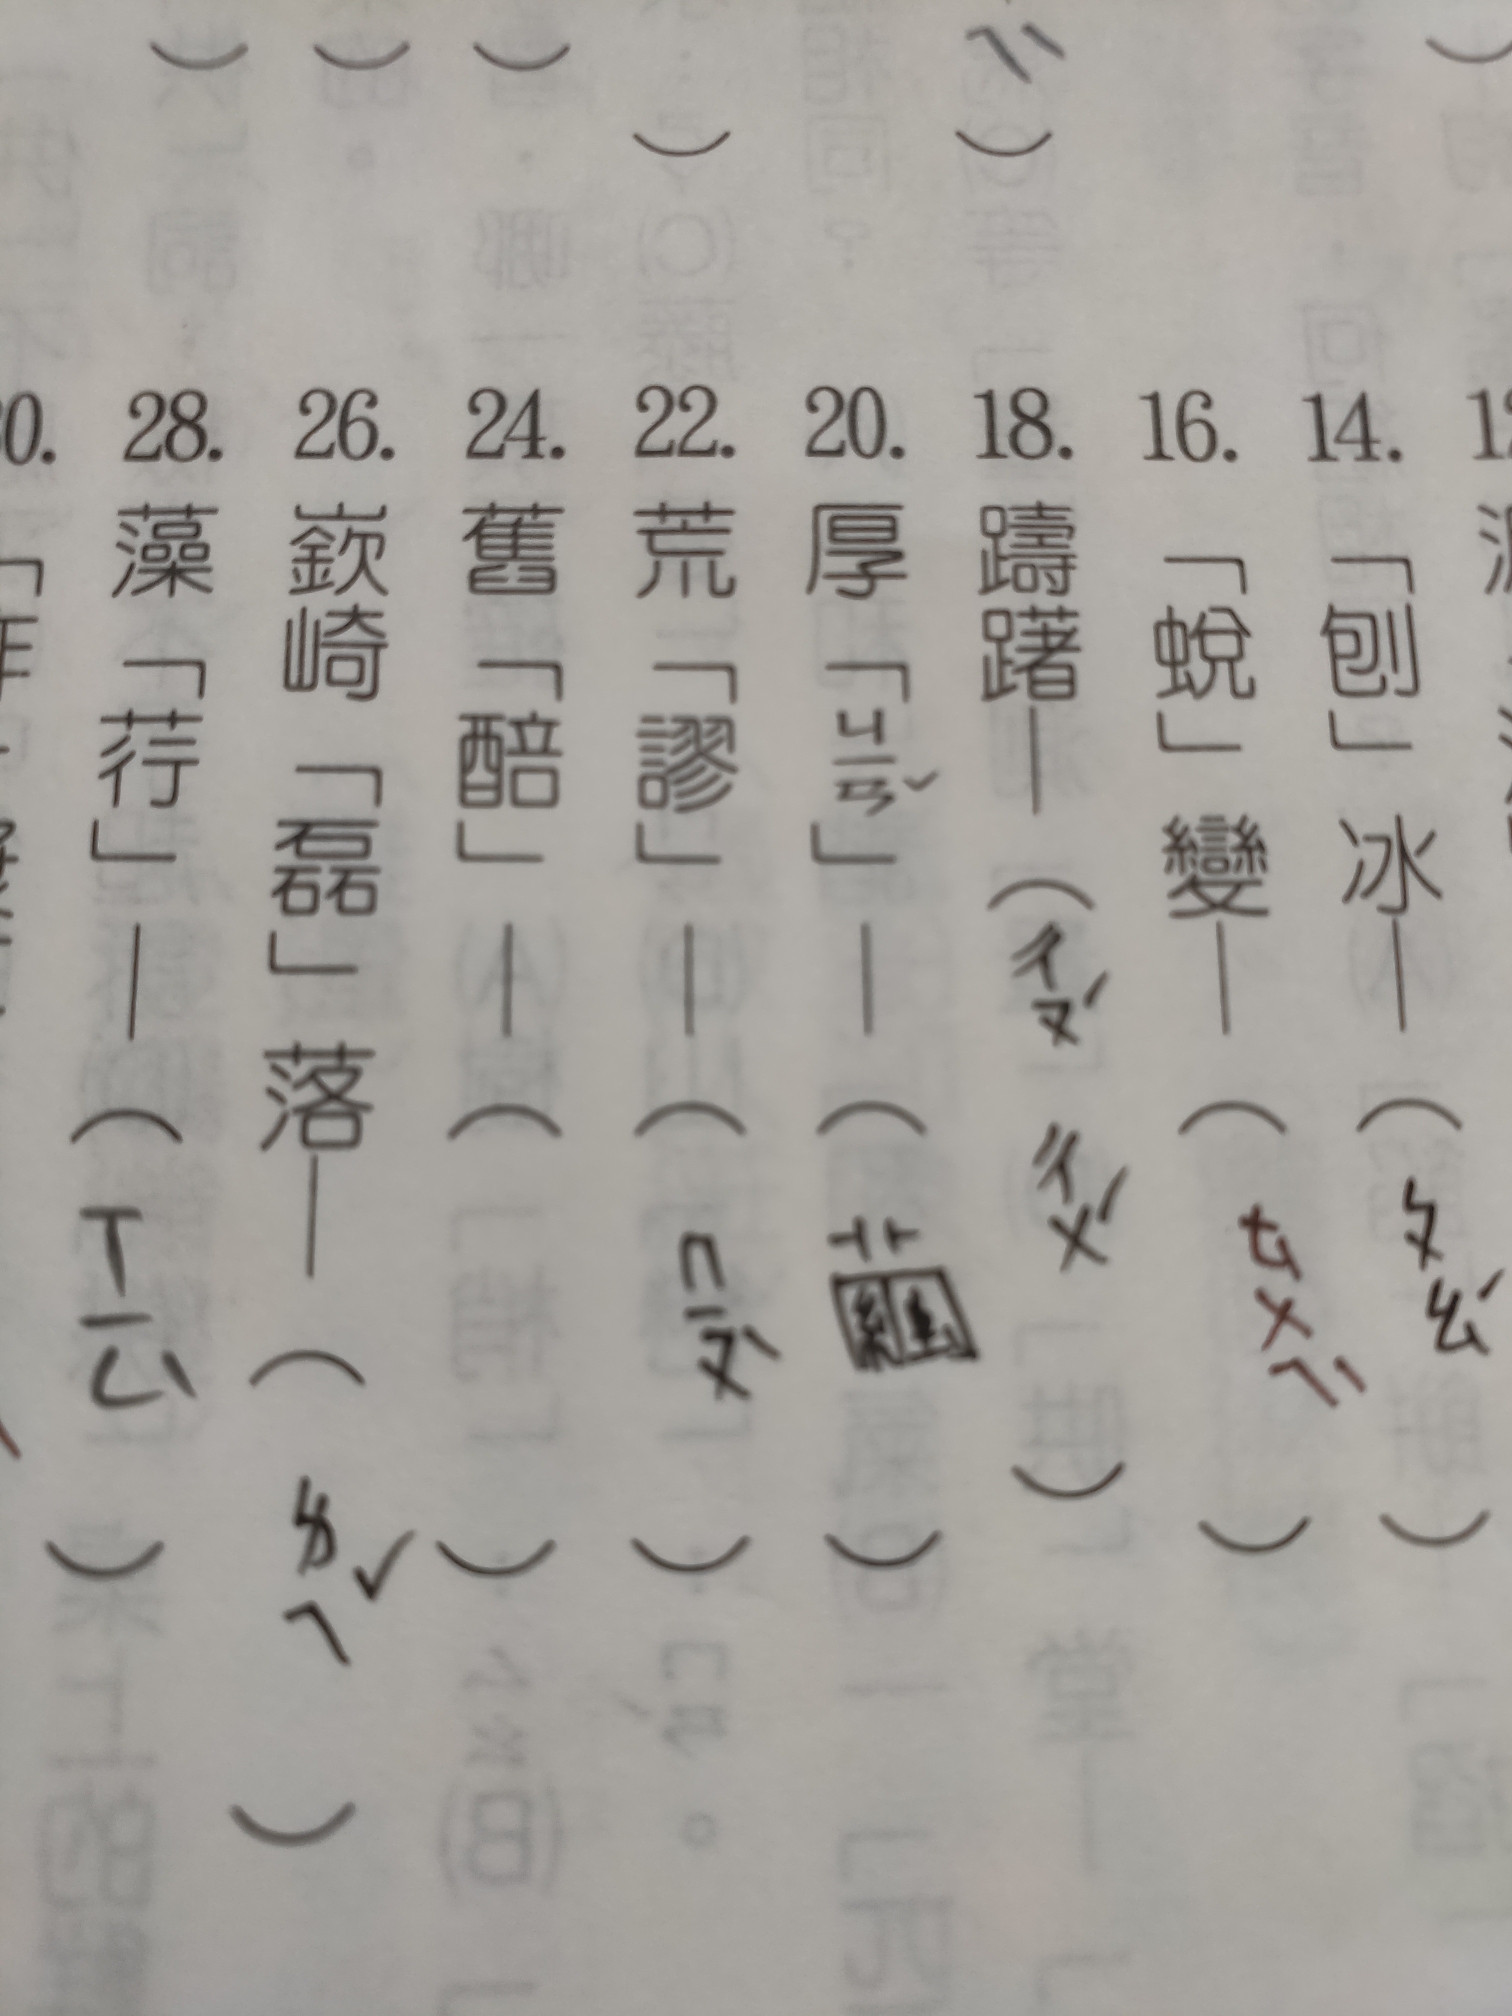 14.「刨」冰—（ㄆㄠˊ）
16.「蛻」變—（ㄊㄨㄟˋ）
18.躊躇—（ㄔㄡˊ ㄔㄨˊ）
20.厚「ㄐㄧㄢˇ」—（繭）
22.荒「謬」—（ㄇㄧㄡˋ）
24.舊「醅」—（）
26.嶔崎「磊」落—（ㄌㄟˇ）
28.藻「荇」—（ㄒㄧㄥˋ）